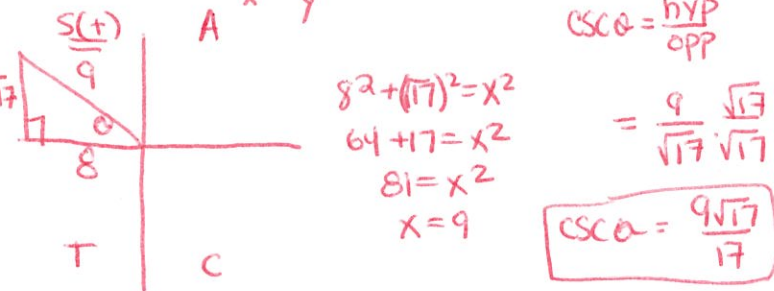 S(+) A
9
θ
8
T C
8² + (√17)² = x²
64 + 17 = x²
81 = x²
x = 9
csc θ = hyp/opp
= 9/√17 · √17/√17
csc θ = 9√17/17